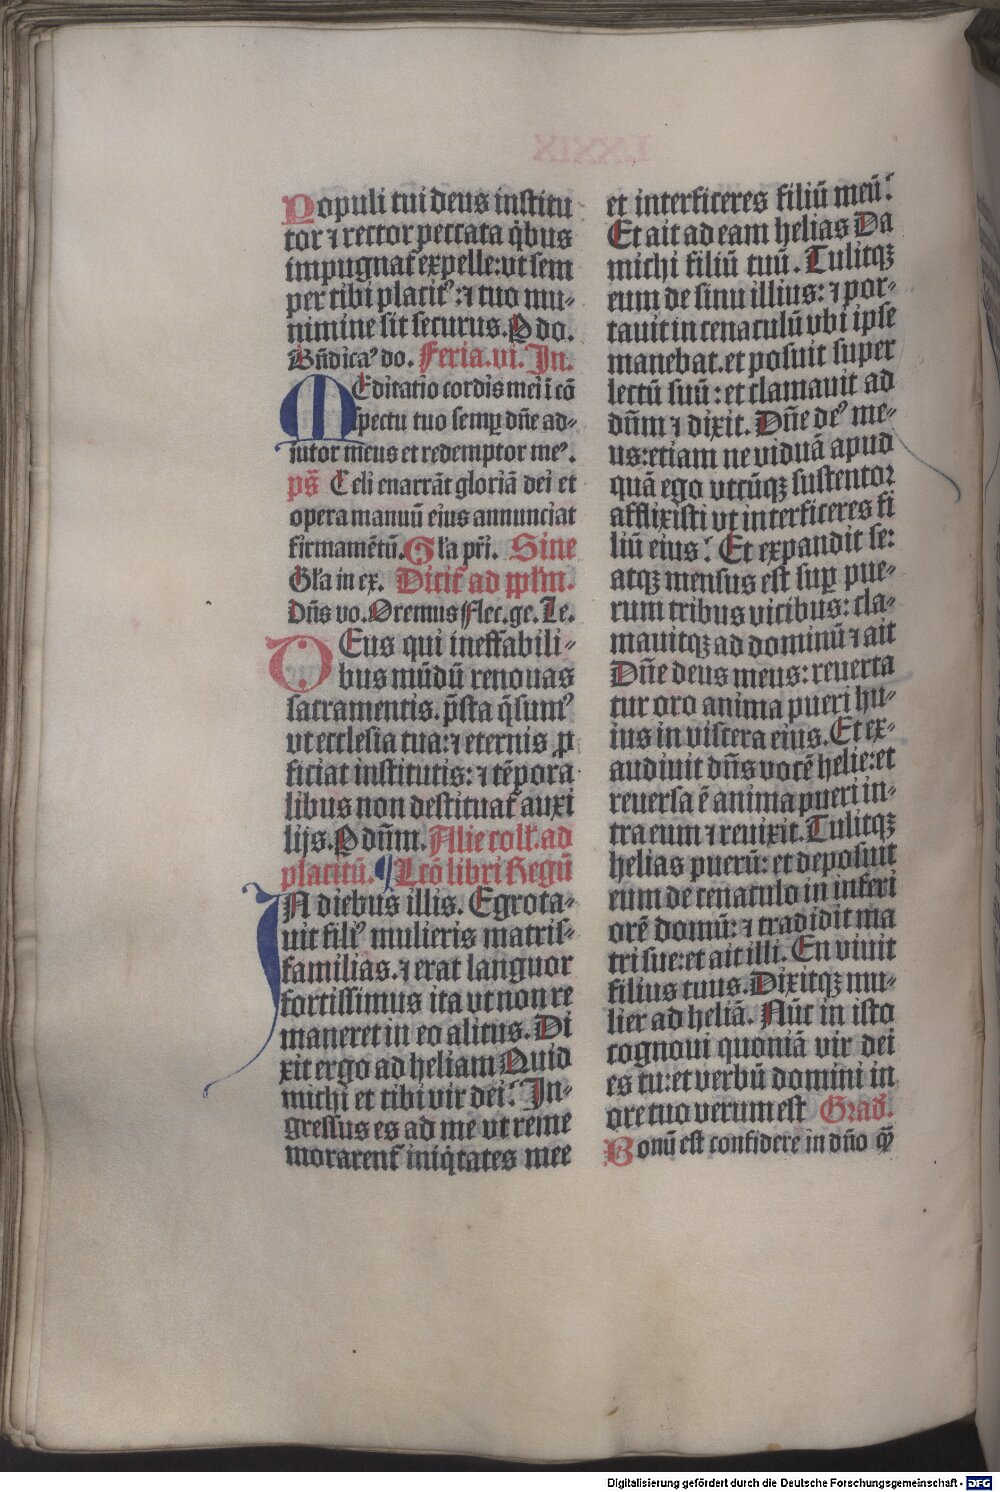 Populi tui deus institu
tor ⁊ rector peccata q̇bus
impugnat᷑ expelle: ut sem
per tibi placit᷒: ⁊ tuo mu-
nimine sit securus. P do.
Bn̄dica᷒ do. Feria. vi. In.
MEditatio cordis mei ī cō
spectu tuo semꝑ dn̄e ad-
iutor meus et redemptor me᷒.
ps̄ Celi enarrāt gloriā dei et
opera manuū eius annunciat
firmamētū. Gl'a pr̄i. Sine
Gl'a in ex. Dicit᷑ ad ppl'm.
Dn̄s vo. Oremus Flec. ge. Le.
DEus qui ineffabili-
bus mūdū renouas
sacramentis. p̄sta q̄sum᷒
ut ecclesia tua: ⁊ eternis ꝓ
ficiat institutis: ⁊ tēpora
libus non destituat᷑ auxi
lijs. P dn̄m. Alie coll'. ad
placitū. ¶ Lcō libri Regū
IN diebus illis. Egrota-
uit fili᷒ mulieris matris-
familias. ⁊ erat languor
fortissimus ita ut non re
maneret in eo alitus. Di
xit ergo ad heliam Quid
michi et tibi vir dei? In-
gressus es ad me ut reme
morarent᷑ iniq̇tates mee
et interficeres filiū meū?
Et ait ad eam helias Da
michi filiū tuū. Tulitqꝫ
eum de sinu illius: ⁊ por-
tauit in cenaculū vbi ipse
manebat. et posuit super
lectū suū: et clamauit ad
dn̄m ⁊ dixit. Dn̄e de᷒ me-
us: etiam ne viduā apud
quā ego vtcūqꝫ sustentor
afflixisti vt interficeres fi
liū eius? Et expandit se:
atqꝫ mensus est suꝑ pue-
rum tribus vicibus: cla-
mauitqꝫ ad dominū ⁊ ait
Dn̄e deus meus: reuerta
tur oro anima pueri hu-
ius in viscera eius. Et ex-
audiuit dn̄s vocē helie: et
reuersa ē anima pueri in-
tra eum ⁊ reuixit. Tulitqꝫ
helias puerū: et deposuit
eum de cenaculo in inferi
orē domū: ⁊ tradidit ma
tri sue: et ait illi. En viuit
filius tuus. Dixitqꝫ mu-
lier ad heliā. Nūc in isto
cognoui quoniā vir dei
es tu: et verbū domini in
ore tuo verum est Grad'.
Bonū est confidere in dn̄o qͫ
Digitalisierung gefördert durch die Deutsche Forschungsgemeinschaft - DFG